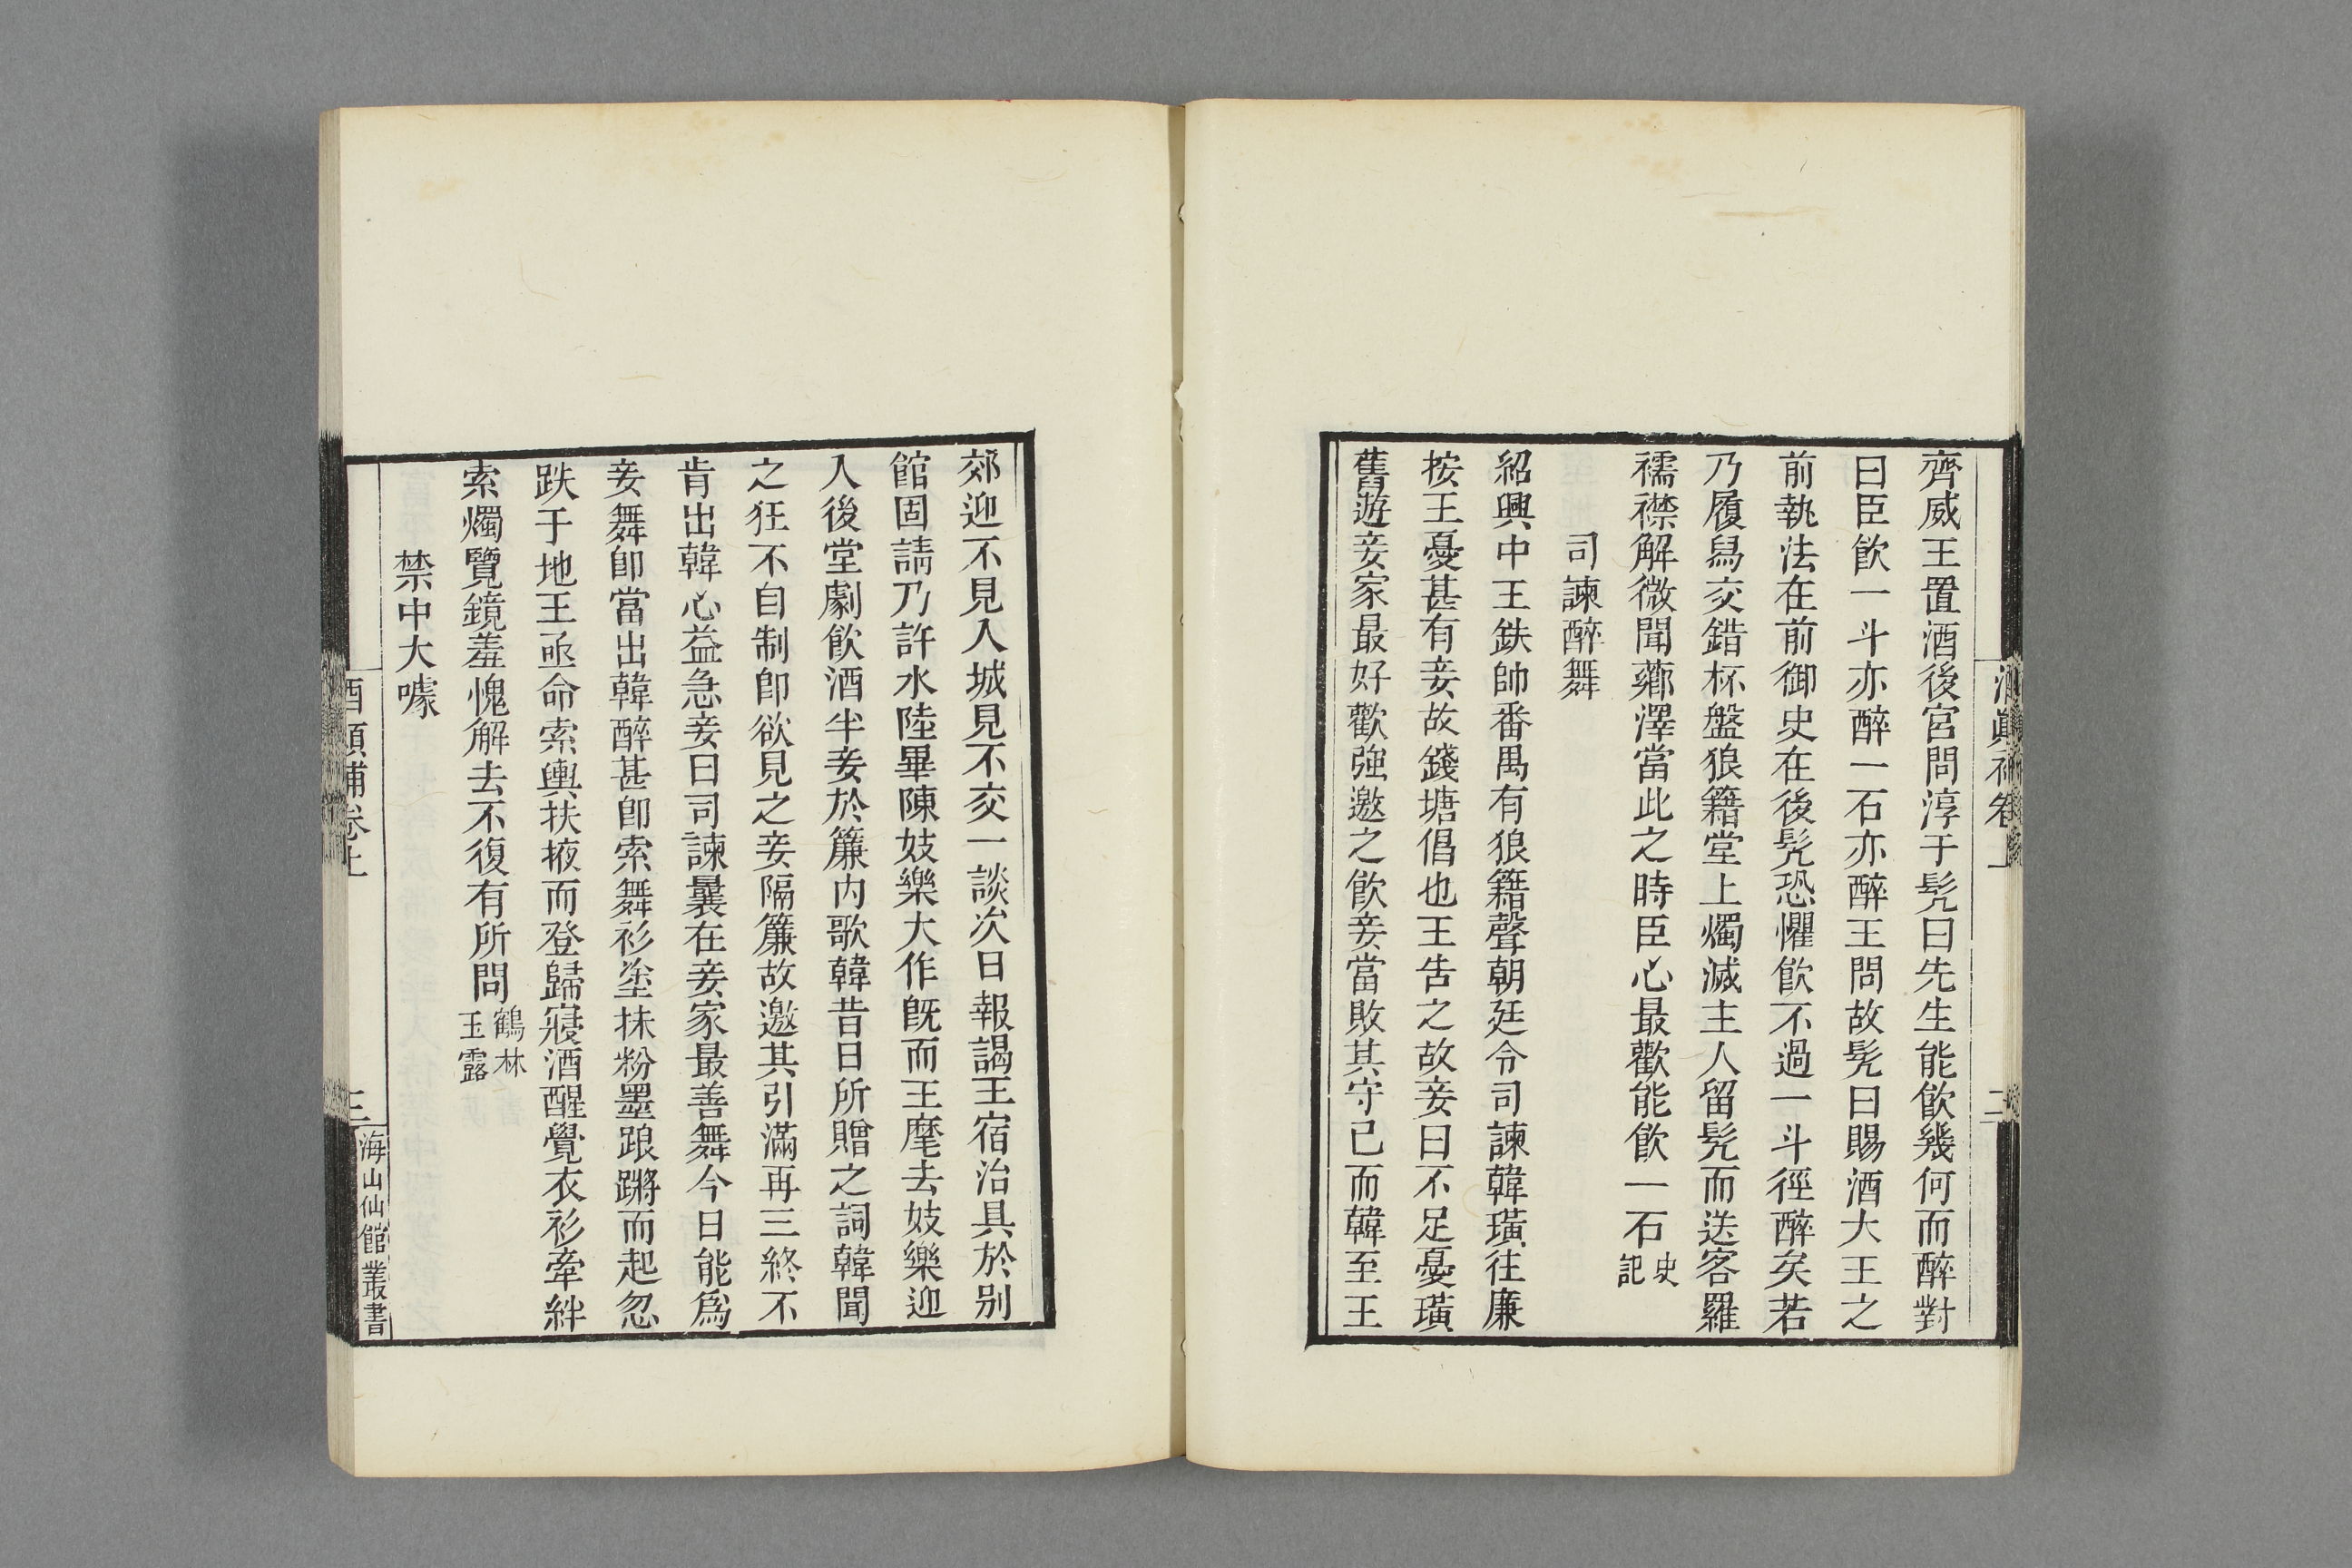 齊威王置酒後宮問淳于髡曰先生能飲幾何而醉對
曰臣飲一斗亦醉一石亦醉王問故髡曰賜酒大王之
前執法在前御史在後髡恐懼飲不過一斗徑醉矣若
乃履舄交錯杯盤狼籍堂上燭滅主人留髡而送客羅
襦襟解微聞薌澤當此之時臣心最歡能飲一石史記
司諫醉舞
紹興中王鈇帥番禺有狼籍聲朝廷令司諫韓璜往廉
按王憂甚有妾故錢塘倡也王告之故妾曰不足憂璜
舊遊妾家最好歡強邀之飲妾當敗其守已而韓至王
郊迎不見入城見不交一談次日報謁王宿治具於別
館固請乃許水陸畢陳妓樂大作既而王麾去妓樂迎
入後堂劇飲酒半妾於簾内歌韓昔日所贈之詞韓聞
之狂不自制即欲見之妾隔簾故邀其引滿再三終不
肯出韓心益急妾曰司諫曩在妾家最善舞今日能爲
妾舞即當出韓醉甚即索舞衫塗抹粉墨踉蹡而起忽
跌于地王亟命索輿扶掖而登歸寢酒醒覺衣衫牽絆
索燭覽鏡羞愧解去不復有所問鶴林玉露
禁中大噱
酒顛補卷上
三
海山仙館叢書